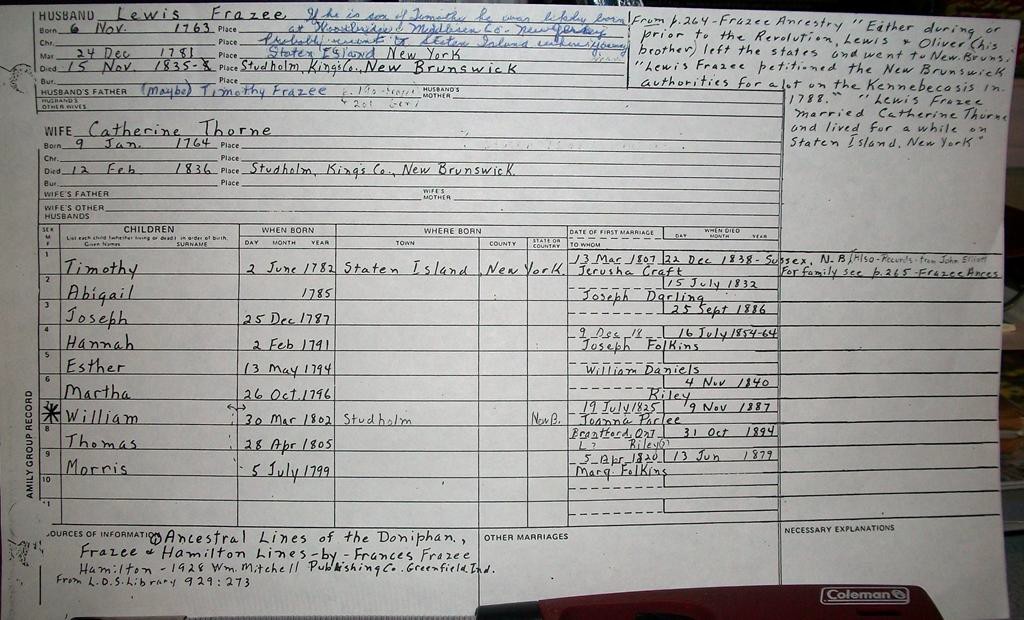 HUSBAND Lewis Frazee, If he is son of Timothy he was likely born
Born 6 Nov. 1763 Place at Woodbridge - Middlesex Co. - New Jersey
Chr. Place Probably went to Staten Island when young
Mar 24 Dec 1781 Place Staten Island, New York
Died 15 Nov. 1835-8 Place Studholm, Kings Co., New Brunswick
Bur. Place
HUSBAND'S FATHER (Maybe) Timothy Frazee HUSBAND'S MOTHER
HUSBAND'S OTHER WIVES
From p.264 - Frazee Ancestry "Either during or
prior to the Revolution, Lewis & Oliver (his
brother) left the states and went to New. Bruns.
"Lewis Frazee petitioned the New Brunswick
authorities for a lot on the Kennebecasis in
1788." "Lewis Frazee
married Catherine Thorne
and lived for a while on
Staten Island, New York"
WIFE Catherine Thorne
Born 9 Jan. 1764 Place
Chr. Place
Died 12 Feb 1836 Place Studholm, Kings Co., New Brunswick.
Bur. Place
WIFE'S FATHER WIFE'S MOTHER
WIFE'S OTHER HUSBANDS
SEX M F CHILDREN WHEN BORN WHERE BORN DATE OF FIRST MARRIAGE WHEN DIED
List each child (whether living or dead) in order of birth. Given Names SURNAME DAY MONTH YEAR TOWN COUNTY STATE OR COUNTRY TO WHOM DAY MONTH YEAR
1 13 Mar 1807 22 Dec 1838 - Sussex, N-B, Also - Records - from John Elliott
Timothy 2 June 1782 Staten Island, New York. Jerusha Craft For family see p.265 - Frazee Ances
2 15 July 1832
Abigail 1785 Joseph Darling
3 25 Sept 1886
Joseph 25 Dec 1787
4 9 Dec 18 16 July 1854-64
Hannah 2 Feb 1791 Joseph Folkins
5
Esther 13 May 1794 William Daniels
6 4 Nov 1840
Martha 26 Oct. 1796 Riley
7 19 July 1825 9 Nov 1887
William 30 Mar 1802 Studholm New B. Joanna Parlee
8 Brantford, Ont 31 Oct 1894
Thomas 28 Apr 1805 L? Riley?
9 5 Apr 1820 13 Jun 1879
Morris 5 July 1799 Marg. Folkins
10
11
AMILY GROUP RECORD
OURCES OF INFORMATION ① Ancestral Lines of the Doniphan,
Frazee & Hamilton Lines - by - Frances Frazee
Hamilton - 1928 Wm. Mitchell Publishing Co. Greenfield, Ind.
From L.D.S. Library 929:273
OTHER MARRIAGES
NECESSARY EXPLANATIONS
Coleman